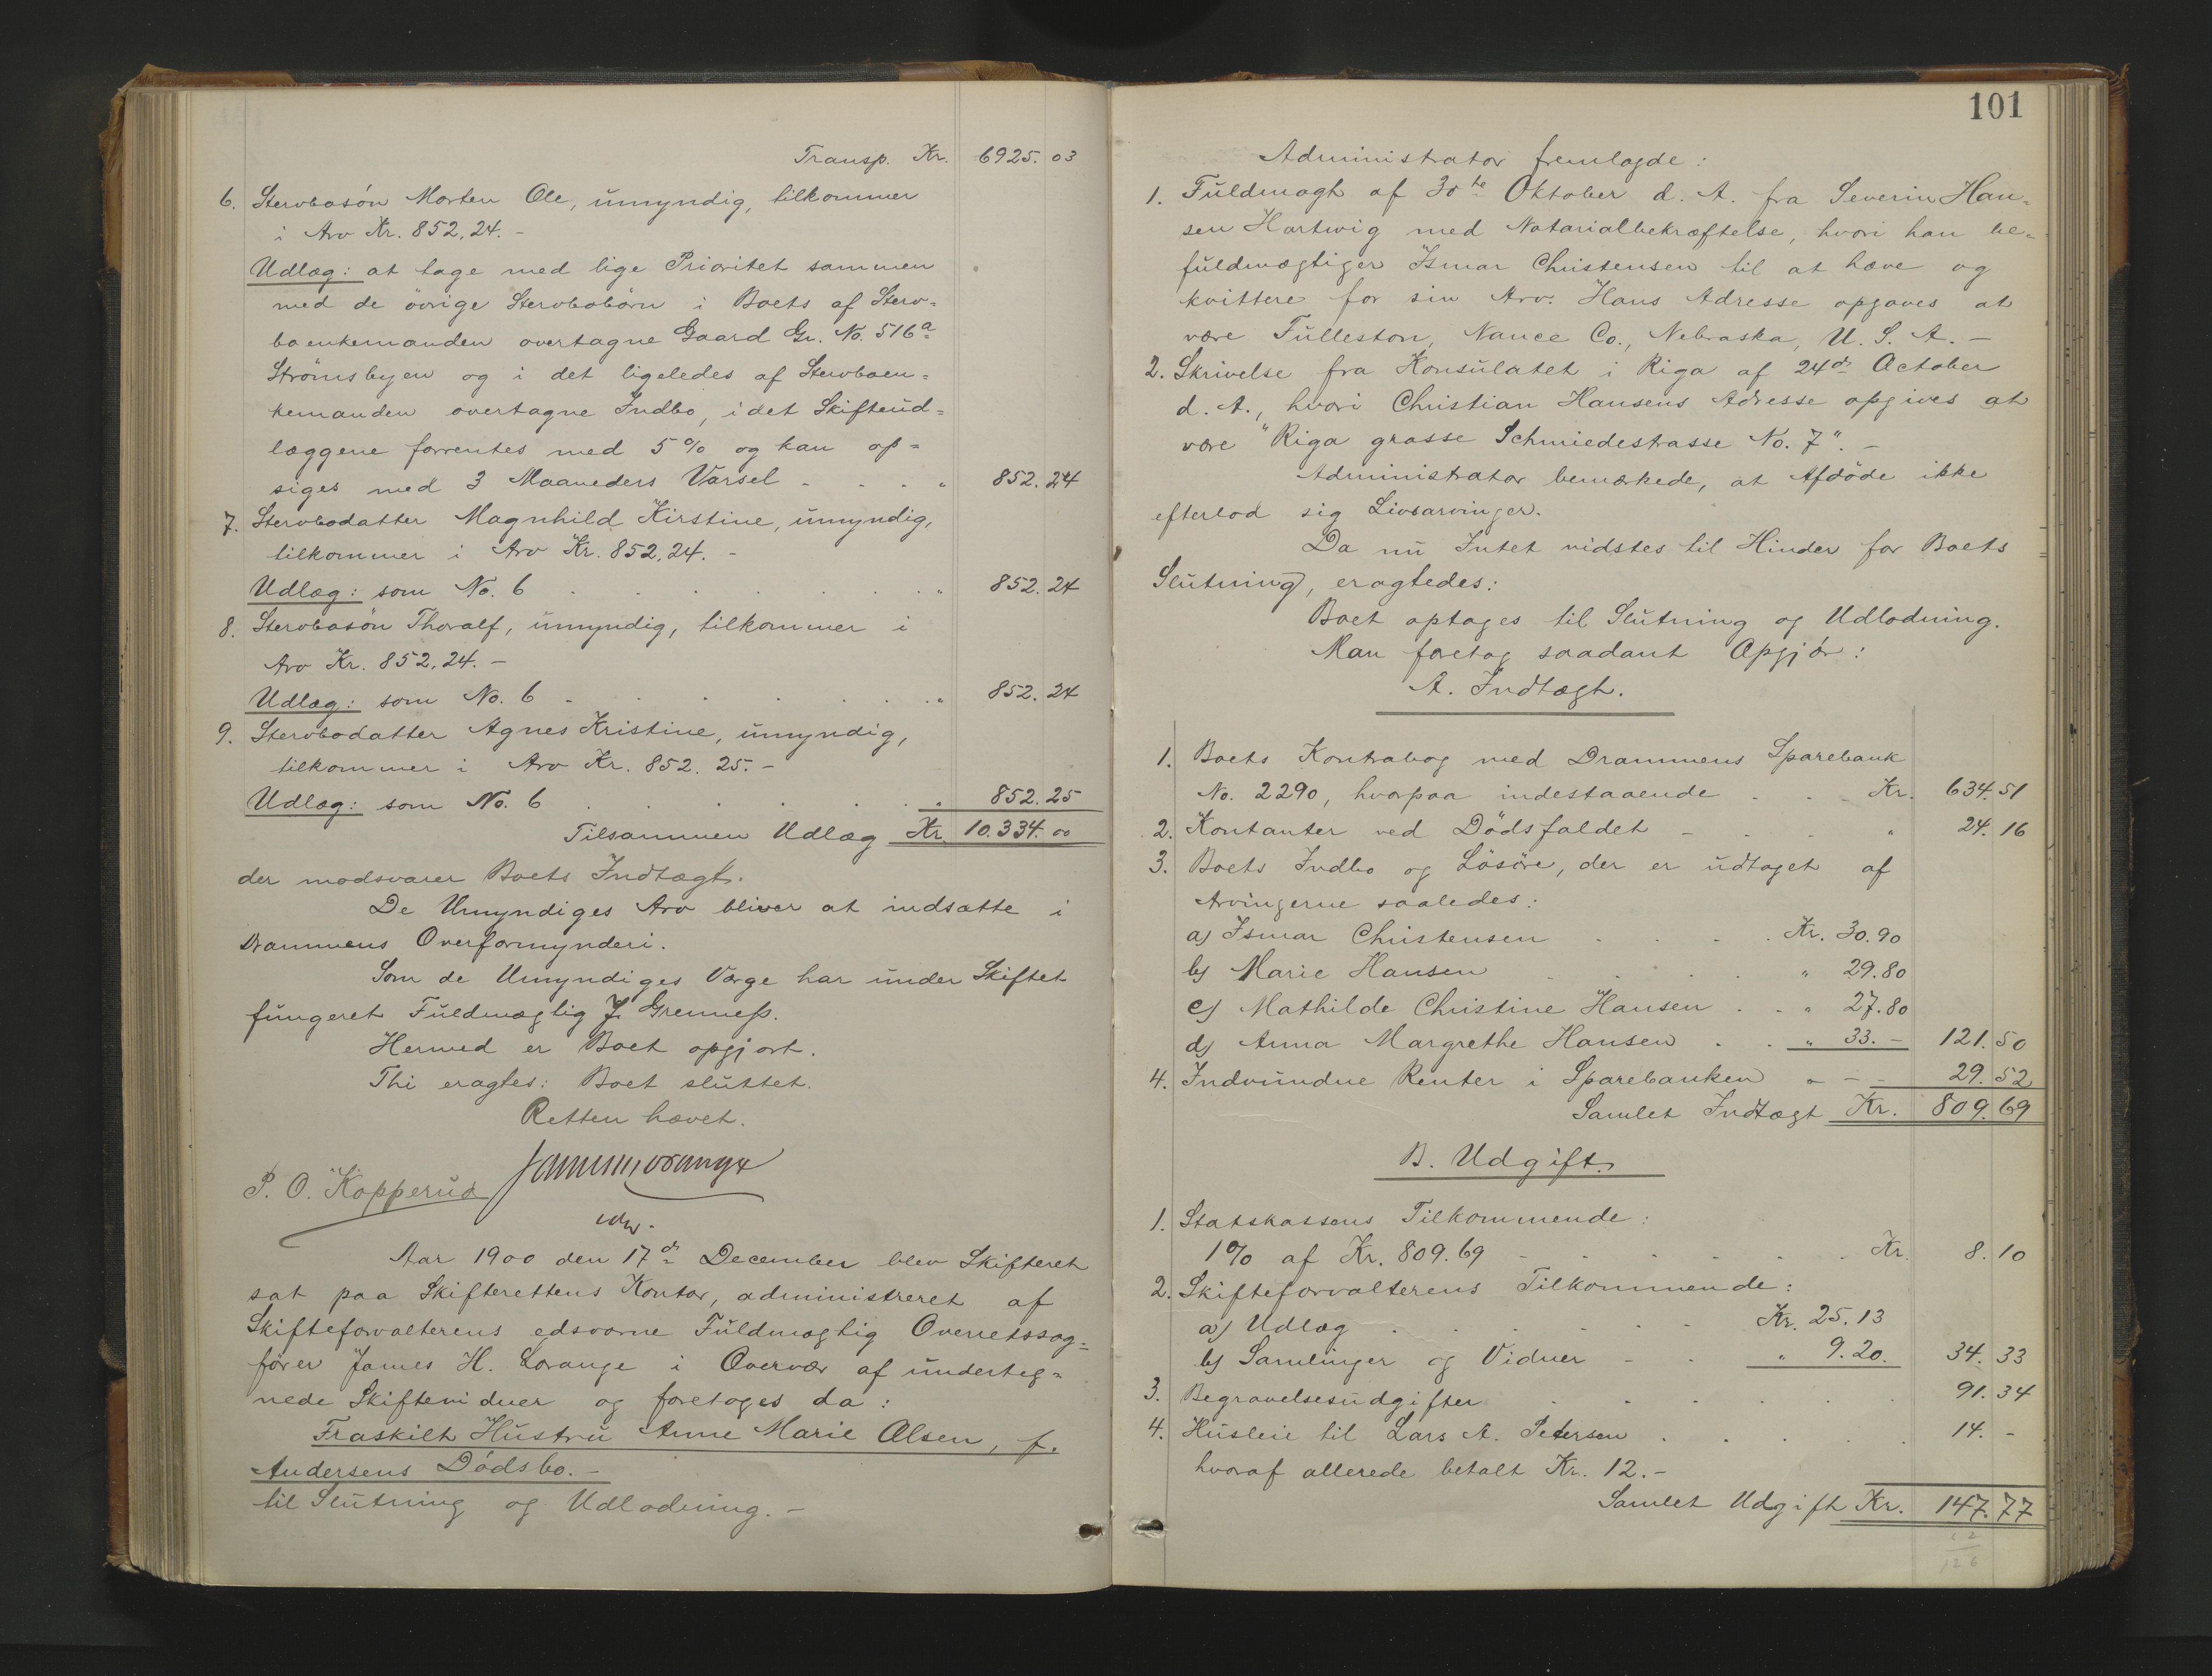 Transp. Kr. 6925. 03
6. Stervbosön Morten Ole, umyndig, tilkommer
i Arv Kr. 852,24. -
Udlæg: at tage med lige Prioritet sammen
med de övrige Stervbobörn i Boets af Sterv=
boenkemanden overtagne Gaard Gr. No. 516a
Strömsbyen og i det ligeledes af Stervboen=
kemanden overtagne Indbo, idet Skifteud=
læggene forrentes med 5 % og kan op=
siges med 3 Maaneders Varsel - . . " 852. 24
7. Stervbodatter Magnhild Kirstine, umyndig,
tilkommer i Arv Kr. 852,24. -
Udlæg: som No. 6 . . . . " 852. 24
8. Stervbosön Thoralf, umyndig, tilkommer i
Arv Kr. 852,24. -
Udlæg: som No. 6 - . . . " 852. 24
9. Stervbodatter Agnes Kristine, umyndig,
tilkommer i Arv Kr. 852. 25. -
Udlæg: som No. 6 . . . . " 852. 25
Tilsammen Udlæg Kr. 10.334. 00
der modsvarer Boets Indtægt.
De Umyndiges Arv bliver at indsætte i
Drammens Overformynderi.
Som de Umyndiges Værge har under Skiftet
fungeret Fuldmægtig J. Grenness.
Hermed er Boet opgjort.
Thi eragtes: Boet sluttet.
Retten hævet.
P. O. Kopperud
Aar 1900 den 17d December blev Skifteret
sat paa Skifterettens Kontor, administreret af
Skifteforvalterens edsvorne Fuldmægtig Overretssag=
förer James H. Lorange i Overvær af underteg=
nede Skiftevidner og foretoges da:
Fraskilt Hustru Anne Marie Olsen, f.
Andersens Dödsbo. -
til Slutning og Udlodning. -
101
Administrator fremlagde:
1. Fuldmagt af 30te Oktober d. A. fra Severin Han=
sen Hartwig med Notarialbekræftelse, hvori han be=
fuldmægtiger Ismar Christensen til at hæve og
kvittere for sin Arv. Hans Adresse opgaves at
være Fulleston, Nance Co., Nebraska, U. S. A. -
2. Skrivelse fra Konsulatet i Riga af 24de October
d. A., hvori Christian Hansens Adresse opgives at
være "Riga grosse Schmiedestrasse No. 7". -
Administrator bemærkede, at Afdöde ikke
efterlod sig Livsarvinger.
Da nu Intet vidstes til Hinder for Boets
Slutning, eragtedes:
Boet optages til Slutning og Udlodning.
Man foretog saadant Opgjör:
A. Indtægt.
1. Boets Kontrabog med Drammens Sparebank
No. 2290, hvorpaa indestaaende . . - Kr. 634. 51
2. Kontanter ved Dödsfaldet - . . " 24. 16
3. Boets Indbo og Lösöre, der er udtaget af
Arvingerne saaledes:
a) Ismar Christensen . . . . Kr. 30.90
b) Marie Hansen . . . . " 29.80
c) Mathilde Christine Hansen . . " 27.80
d) Anna Margrethe Hansen . . " 33. - 121. 50
4. Indvundne Renter i Sparebanken " - - 29. 52
Samlet Indtægt Kr. 809. 69
B. Udgift.
1. Statskassens Tilkommende:
1% af Kr. 809.69 - . . . . Kr. 8. 10
2. Skifteforvalterens Tilkommende:
a) Udlæg . . . . - Kr. 25.13
b) Samlinger og Vidner - . " 9.20. 34. 33
3. Begravelsesudgifter . . . . . 91. 34
4. Husleie til Lars A. Petersen . . . . 14. -
hvoraf allerede betalt Kr. 12. -
Samlet Udgift Kr. 147. 77
12 6